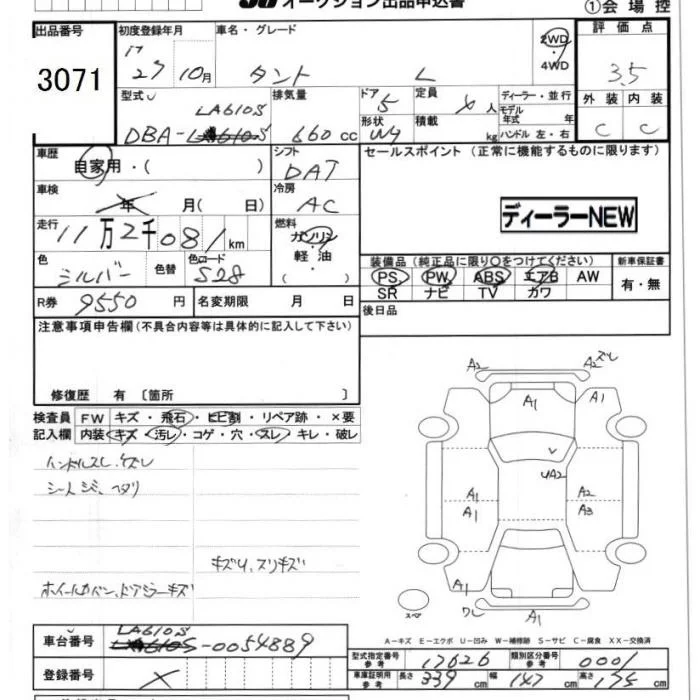 オークション出品申込書
①会場控
出品番号
3071
初度登録年月
27 10月
車名・グレード
タント L
2WD
4WD
評価点
3.5
外装 内装
C C
型式
LA610S
DBA-LA610S
排気量
660 cc
ドア 5
形状
定員 人
積載 kg
ディーラー・並行
モデル
年式 年
ハンドル 左・右
車歴
自家用・( )
シフト
DAT
セールスポイント (正常に機能するものに限ります)
ディーラーNEW
車検
年 月( 日)
冷房
AC
走行
11万2千081km
燃料
ガソリン
軽油
色
シルバー
色替
色コード
S28
装備品 (純正品に限り〇をつけてください)
PS PW ABS エアB AW
SR ナビ TV カワ
新車保証書
有・無
R券 9550 円
名変期限 月 日
後日品
注意事項申告欄 (不具合内容等は具体的に記入して下さい)
修復歴 有 〔箇所 〕
検査員
記入欄
FW キズ・飛石・ヒビ割・リペア跡・×要
内装 キズ・汚レ・コゲ・穴・スレ・キレ・破レ
ハンドルスレ、ケズレ
シートシミ、ヘタリ
キズU、スリキズ
ホイールカバー、ドアミラーキズ
A2
A2ズレ
A1
A1
UA2
A1
A2
A1
A3
A1
ワレ
A1
スペア
A-キズ E-エクボ U-凹み W-補修跡 S-サビ C-腐食 XX-交換済
車台番号
LA610S
LA610S-0054889
登録番号
型式指定番号
参考
17626
類別区分番号
参考
0001
車庫証明用
参考
長さ 339 cm 幅 147 cm 高さ 175 cm